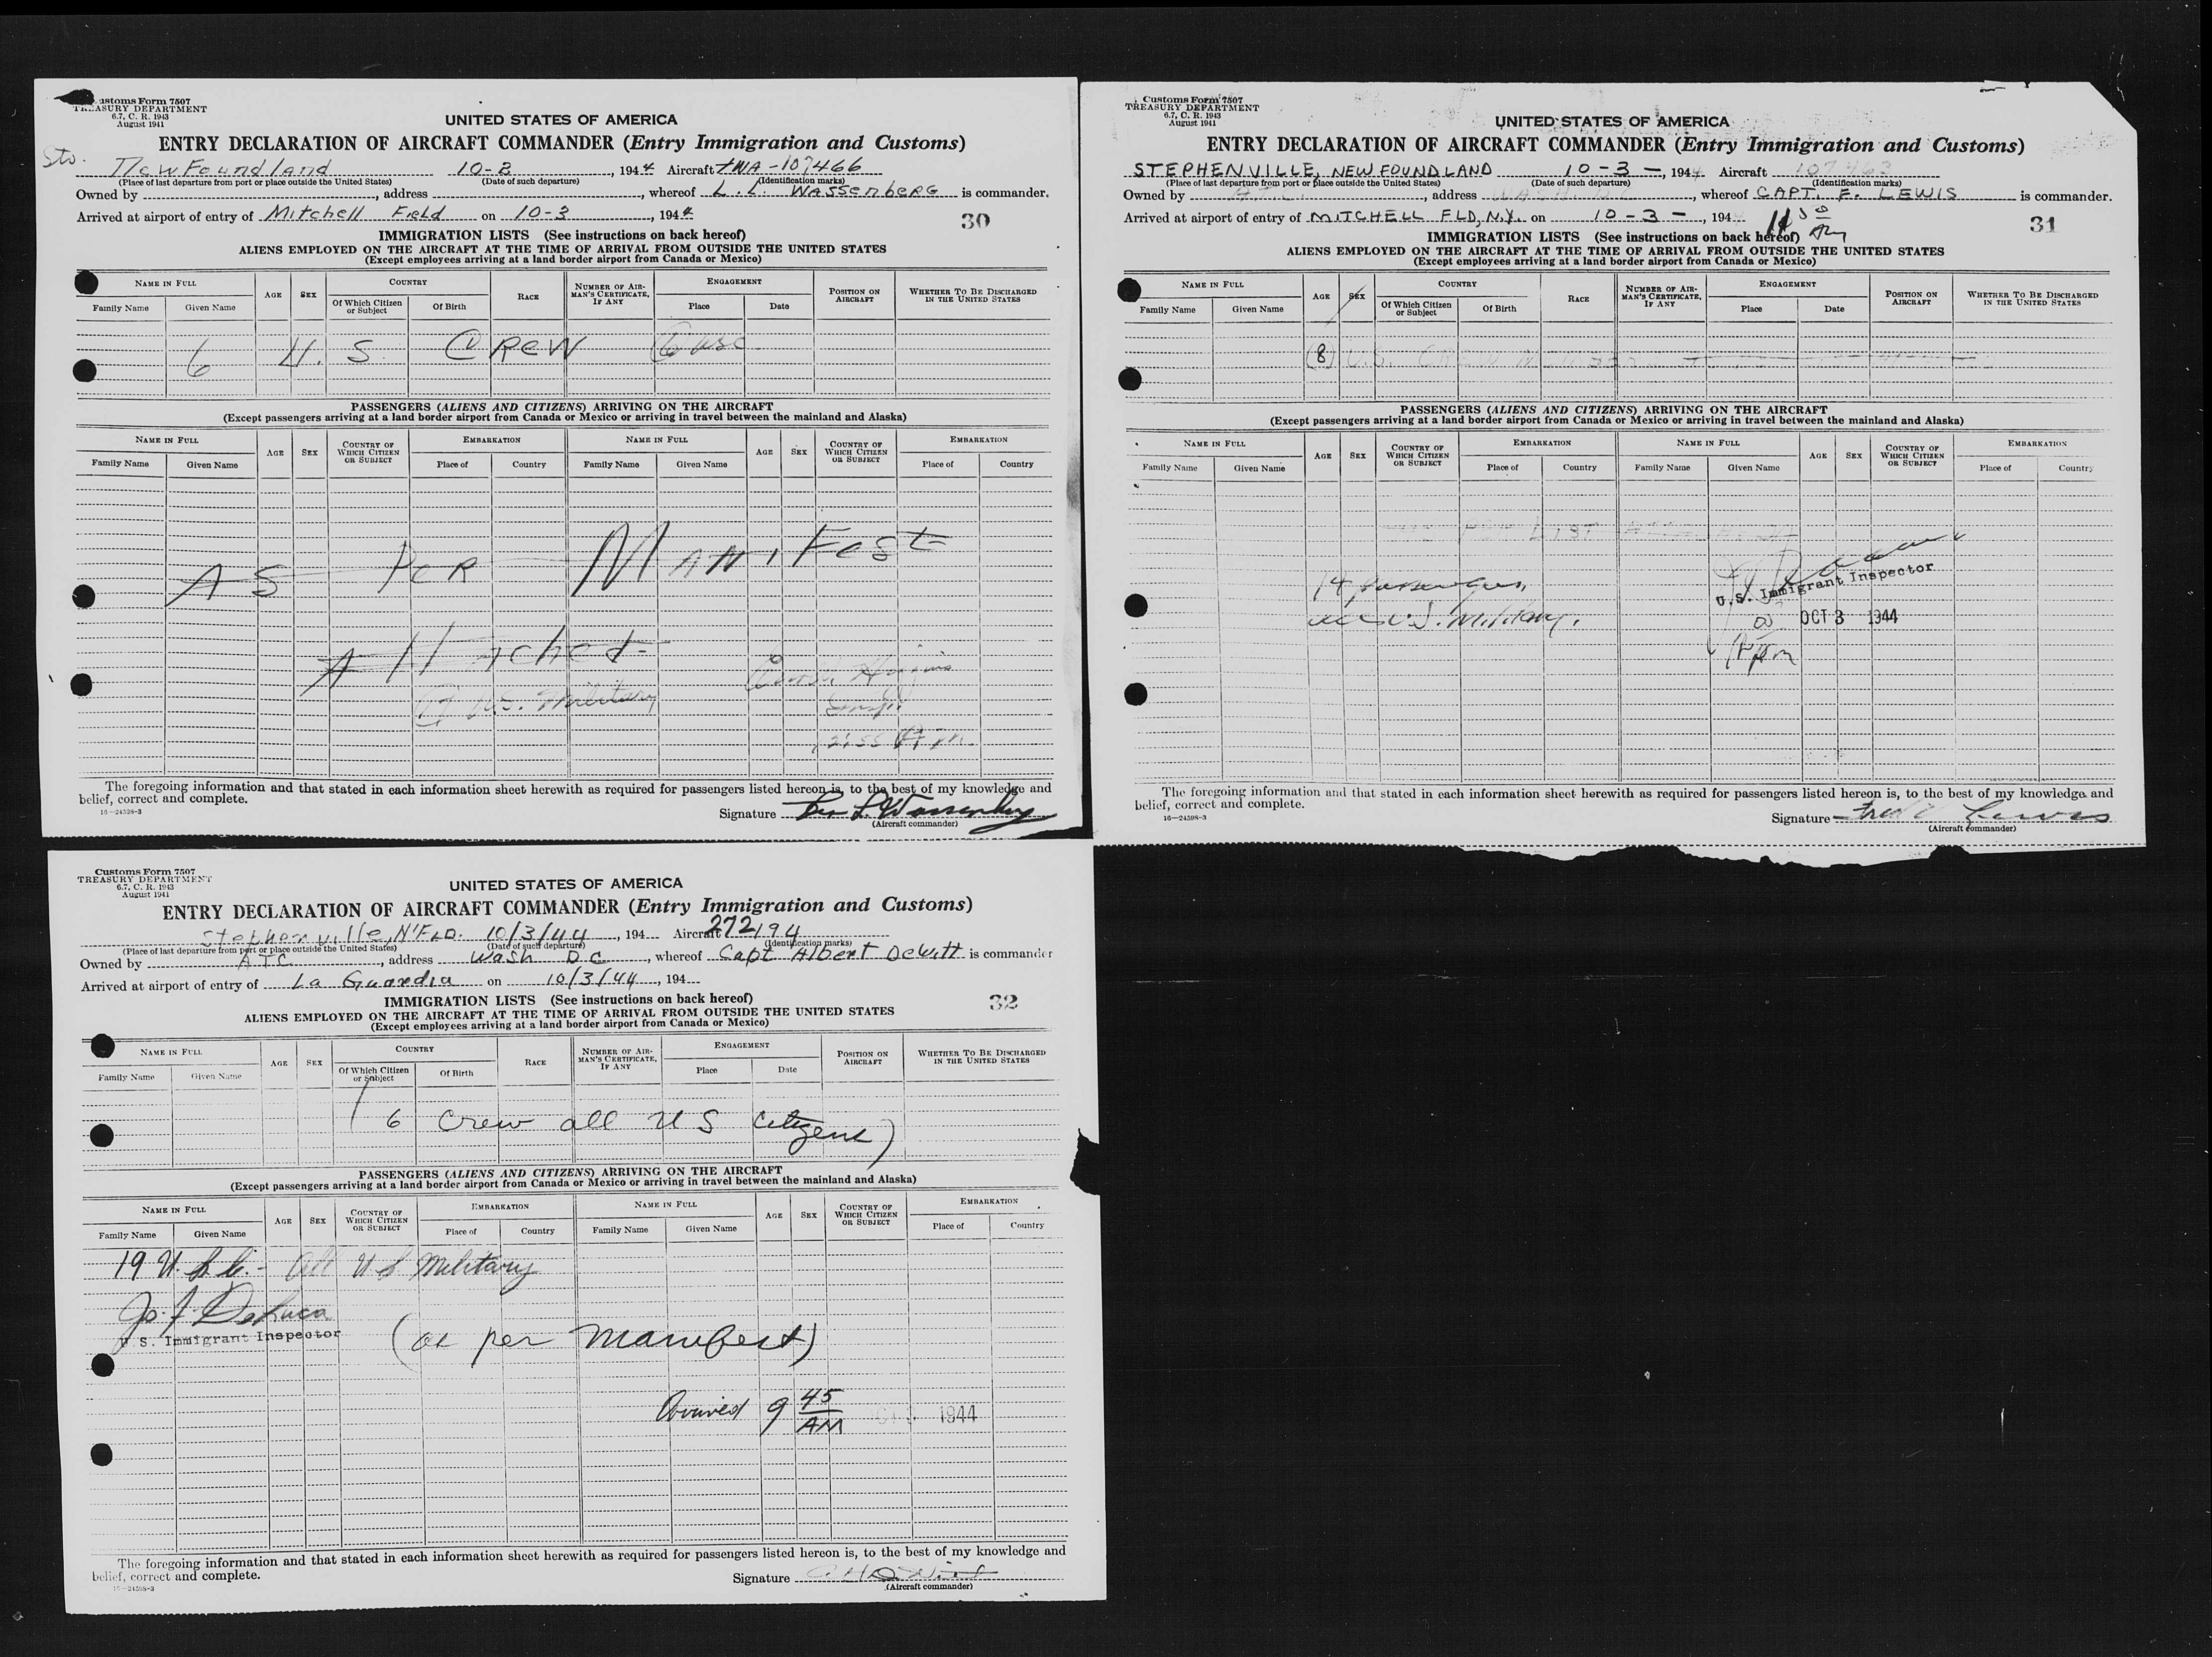 Customs Form 7507
TREASURY DEPARTMENT
6.7, C. R. 1943
August 1941
UNITED STATES OF AMERICA
ENTRY DECLARATION OF AIRCRAFT COMMANDER (Entry Immigration and Customs)
NewFoundland 10-2, 1944 Aircraft TWA-107466
(Place of last departure from port or place outside the United States) (Date of such departure) (Identification marks)
Owned by , address , whereof L. L. WASSENBERG is commander.
Arrived at airport of entry of Mitchell Field on 10-3, 1944
30
IMMIGRATION LISTS (See instructions on back hereof)
ALIENS EMPLOYED ON THE AIRCRAFT AT THE TIME OF ARRIVAL FROM OUTSIDE THE UNITED STATES
(Except employees arriving at a land border airport from Canada or Mexico)
NAME IN FULL AGE SEX COUNTRY RACE NUMBER OF AIRMAN'S CERTIFICATE, IF ANY ENGAGEMENT POSITION ON AIRCRAFT WHETHER TO BE DISCHARGED IN THE UNITED STATES
Family Name Given Name Of Which Citizen or Subject Of Birth Place Date
6 U. S. CREW
PASSENGERS (ALIENS AND CITIZENS) ARRIVING ON THE AIRCRAFT
(Except passengers arriving at a land border airport from Canada or Mexico or arriving in travel between the mainland and Alaska)
NAME IN FULL AGE SEX COUNTRY OF WHICH CITIZEN OR SUBJECT EMBARKATION NAME IN FULL AGE SEX COUNTRY OF WHICH CITIZEN OR SUBJECT EMBARKATION
Family Name Given Name Place of Country Family Name Given Name Place of Country
AS PER MANIFest
Attached
U.S. Military
12:55 A.M.
The foregoing information and that stated in each information sheet herewith as required for passengers listed hereon is, to the best of my knowledge and
belief, correct and complete.
16—24598-3
Signature
(Aircraft commander)
Customs Form 7507
TREASURY DEPARTMENT
6.7, C. R. 1943
August 1941
UNITED STATES OF AMERICA
ENTRY DECLARATION OF AIRCRAFT COMMANDER (Entry Immigration and Customs)
STEPHENVILLE, NEWFOUNDLAND 10-3-, 1944 Aircraft 107463
(Place of last departure from port or place outside the United States) (Date of such departure) (Identification marks)
Owned by , address WASH. , whereof CAPT. F. LEWIS is commander.
Arrived at airport of entry of MITCHELL FLD, N.Y. on 10-3-, 194
31
IMMIGRATION LISTS (See instructions on back hereof)
ALIENS EMPLOYED ON THE AIRCRAFT AT THE TIME OF ARRIVAL FROM OUTSIDE THE UNITED STATES
(Except employees arriving at a land border airport from Canada or Mexico)
NAME IN FULL AGE SEX COUNTRY RACE NUMBER OF AIRMAN'S CERTIFICATE, IF ANY ENGAGEMENT POSITION ON AIRCRAFT WHETHER TO BE DISCHARGED IN THE UNITED STATES
Family Name Given Name Of Which Citizen or Subject Of Birth Place Date
(8) U.S. CREW
PASSENGERS (ALIENS AND CITIZENS) ARRIVING ON THE AIRCRAFT
(Except passengers arriving at a land border airport from Canada or Mexico or arriving in travel between the mainland and Alaska)
NAME IN FULL AGE SEX COUNTRY OF WHICH CITIZEN OR SUBJECT EMBARKATION NAME IN FULL AGE SEX COUNTRY OF WHICH CITIZEN OR SUBJECT EMBARKATION
Family Name Given Name Place of Country Family Name Given Name Place of Country
PER LIST ATTACHED
14 passengers,
all U.S. Military.
U.S. Immigrant Inspector
OCT 3 1944
The foregoing information and that stated in each information sheet herewith as required for passengers listed hereon is, to the best of my knowledge and
belief, correct and complete.
16—24598-3
Signature Fred Lewis
(Aircraft commander)
Customs Form 7507
TREASURY DEPARTMENT
6.7, C. R. 1943
August 1941
UNITED STATES OF AMERICA
ENTRY DECLARATION OF AIRCRAFT COMMANDER (Entry Immigration and Customs)
Stephenville, N'FLD. 10/3/44, 194 Aircraft 272194
(Place of last departure from port or place outside the United States) (Date of such departure) (Identification marks)
Owned by ATC, address Wash DC, whereof Capt Albert DeWitt is commander
Arrived at airport of entry of La Guardia on 10/3/44, 194
32
IMMIGRATION LISTS (See instructions on back hereof)
ALIENS EMPLOYED ON THE AIRCRAFT AT THE TIME OF ARRIVAL FROM OUTSIDE THE UNITED STATES
(Except employees arriving at a land border airport from Canada or Mexico)
NAME IN FULL AGE SEX COUNTRY RACE NUMBER OF AIRMAN'S CERTIFICATE, IF ANY ENGAGEMENT POSITION ON AIRCRAFT WHETHER TO BE DISCHARGED IN THE UNITED STATES
Family Name Given Name Of Which Citizen or Subject Of Birth Place Date
(6 Crew all US Citizens)
PASSENGERS (ALIENS AND CITIZENS) ARRIVING ON THE AIRCRAFT
(Except passengers arriving at a land border airport from Canada or Mexico or arriving in travel between the mainland and Alaska)
NAME IN FULL AGE SEX COUNTRY OF WHICH CITIZEN OR SUBJECT EMBARKATION NAME IN FULL AGE SEX COUNTRY OF WHICH CITIZEN OR SUBJECT EMBARKATION
Family Name Given Name Place of Country Family Name Given Name Place of Country
19 U.S.C. - All US Military
Jo. J. DeLuca
U.S. Immigrant Inspector
(as per manifest)
Arrived 9 45 AM OCT 3 1944
The foregoing information and that stated in each information sheet herewith as required for passengers listed hereon is, to the best of my knowledge and
belief, correct and complete.
16—24598-3
Signature
(Aircraft commander)